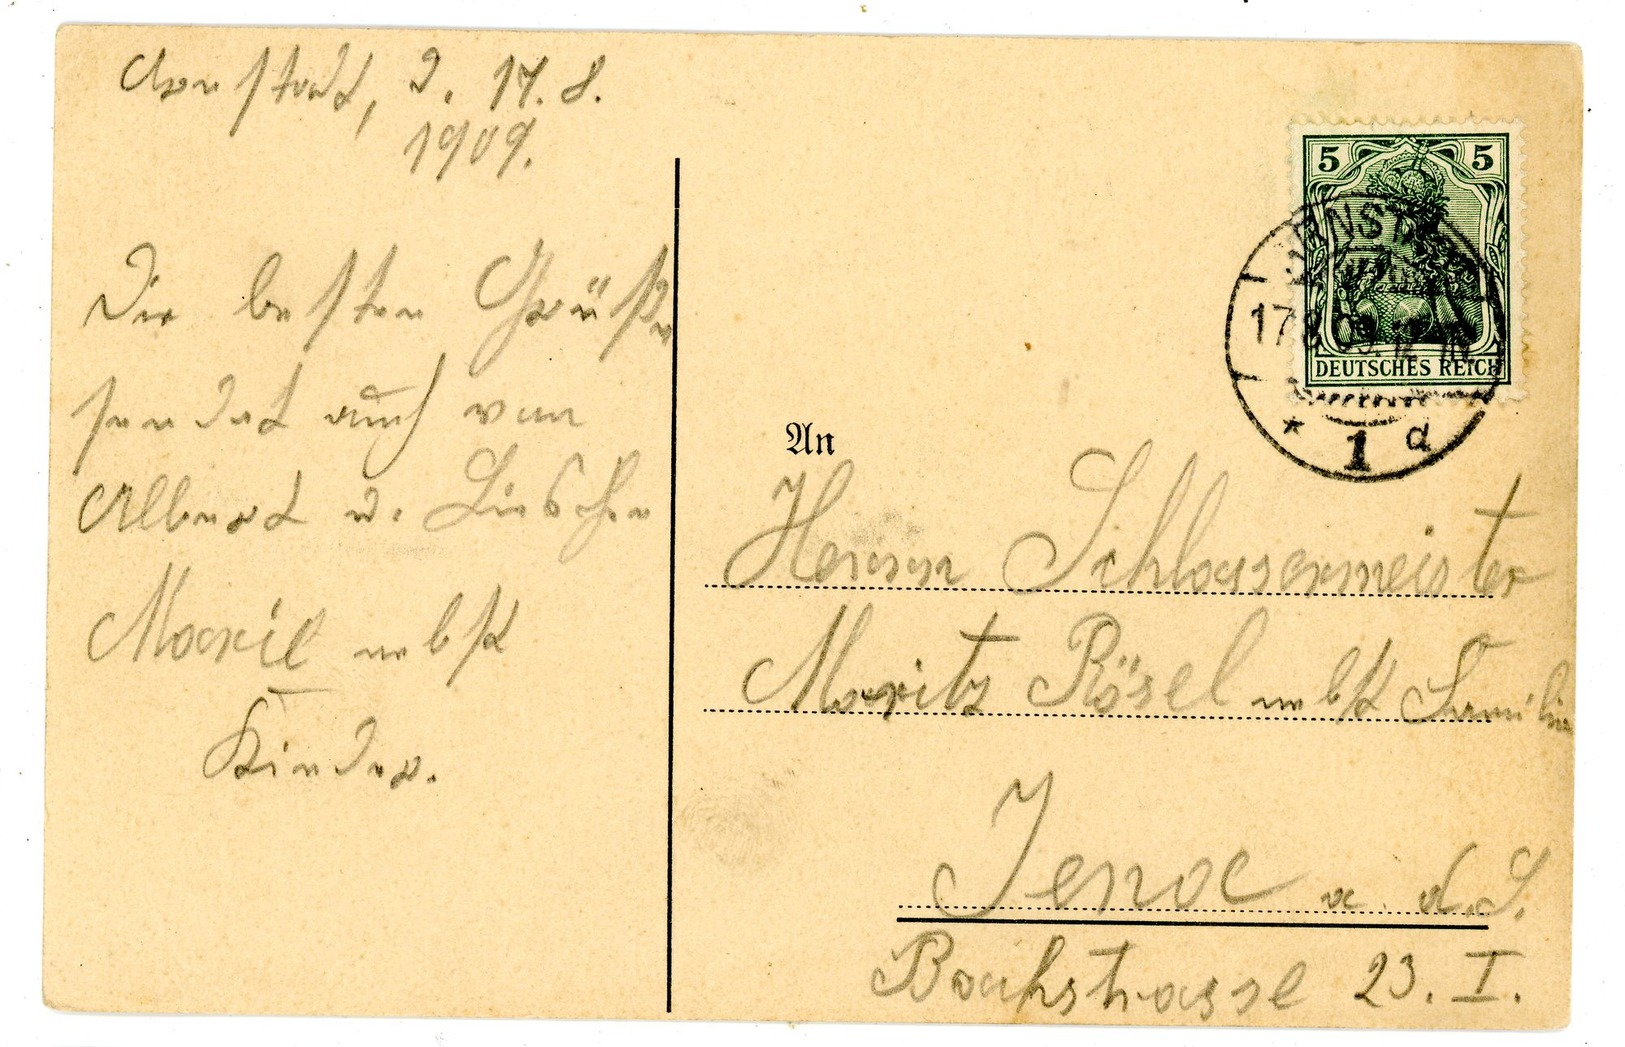 Arnstadt, d. 17. 8.
1909.
Die besten Grüße
sendet auch von
Albert u. Lieschen
nebst
Kinder.
5 5
ARNSTADT
17.8.09.
DEUTSCHES REICH
* 1 d
An
Herrn Schlossermeister
Moritz Rösel nebst Familie
Jena a. d. S.
Bachstrasse 23. I.